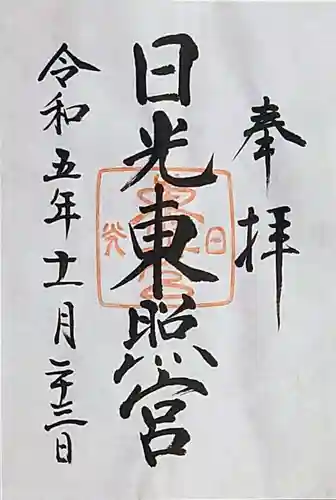 奉拝
日光東照宮
令和五年十一月二十三日
日
光